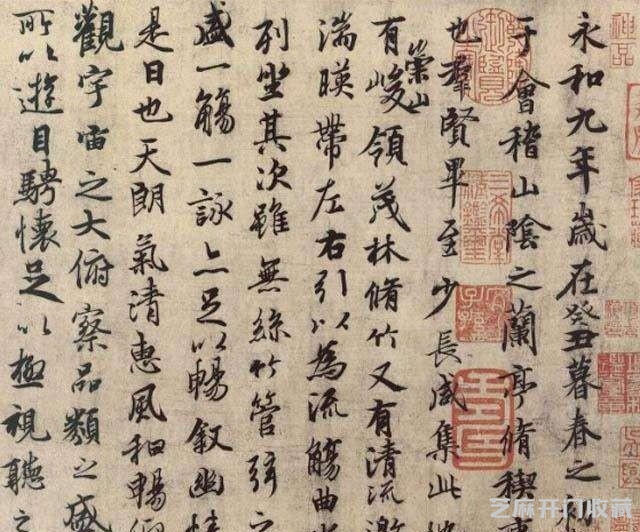 永和九年歲在癸丑暮春之
于會稽山陰之蘭亭脩禊事
也羣賢畢至少長咸集此
有崇山峻領茂林脩竹又有清流激
湍暎帶左右引以為流觴曲水
列坐其次雖無絲竹管弦之
盛一觴一詠亦足以暢敘幽情
是日也天朗氣清惠風和暢仰
觀宇宙之大俯察品類之盛
所以遊目騁懷足以極視聽之
神品
三希堂精鑑璽
宜子孫
芝麻开门收藏